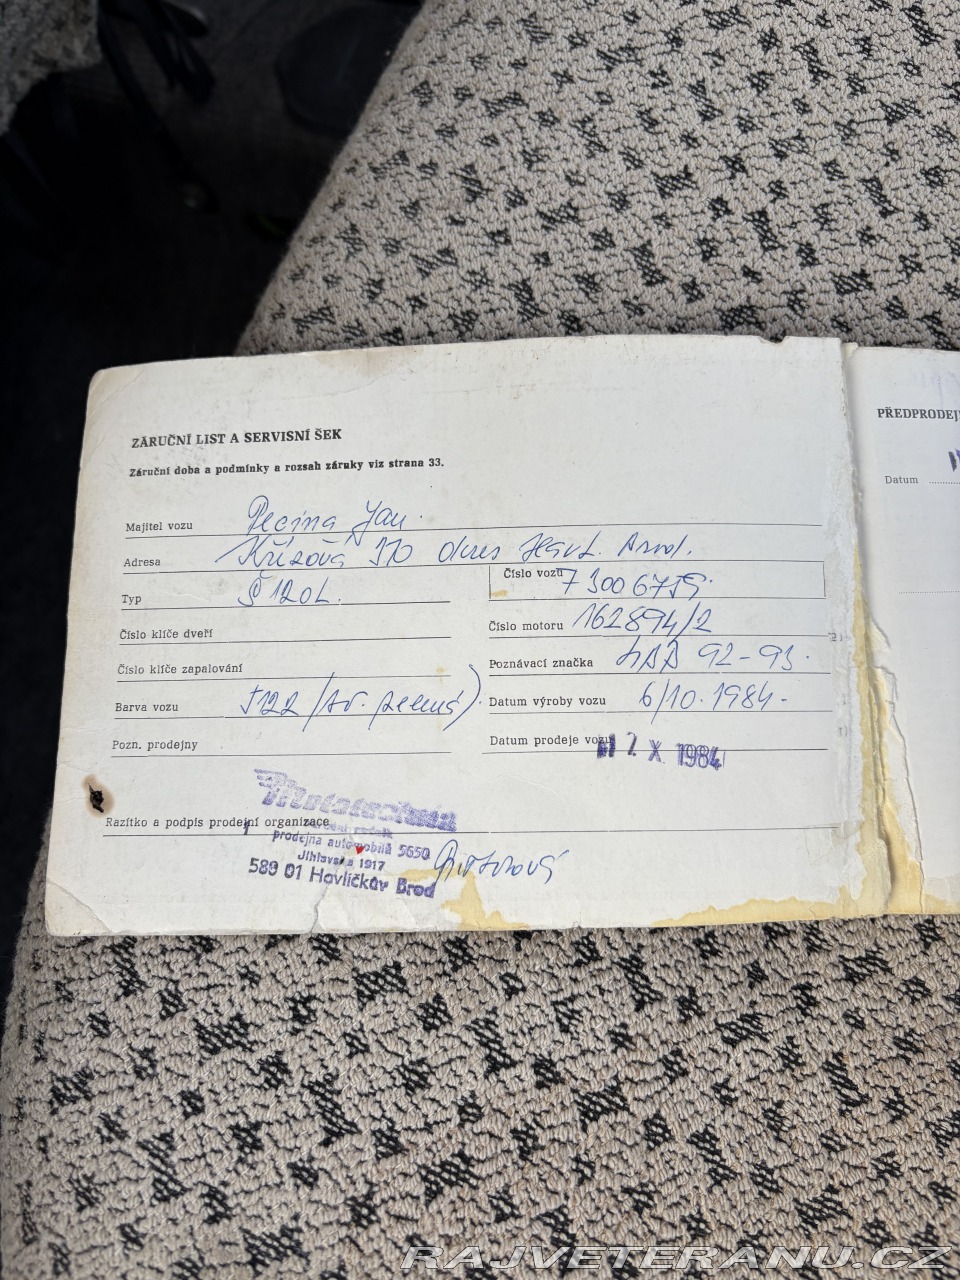 ZÁRUČNÍ LIST A SERVISNÍ ŠEK
Záruční doba a podmínky a rozsah záruky viz strana 33.
Majitel vozu Pecina Jan
Adresa Křížová 370 okres Havl. Brod.
Typ Š 120L.
Číslo vozu
Číslo klíče dveří
Číslo motoru 162894/2
Číslo klíče zapalování
Poznávací značka HBA 92-93.
Barva vozu
Datum výroby vozu 6/10.1984.
Pozn. prodejny
Datum prodeje vozu X 1984
Razítko a podpis prodejní organizace
Mototechna
prodejna automobilů 5650
Jihlavská 1917
589 01 Havlíčkův Brod
PŘEDPRODEJ
Datum
RAJVETERANU.CZ